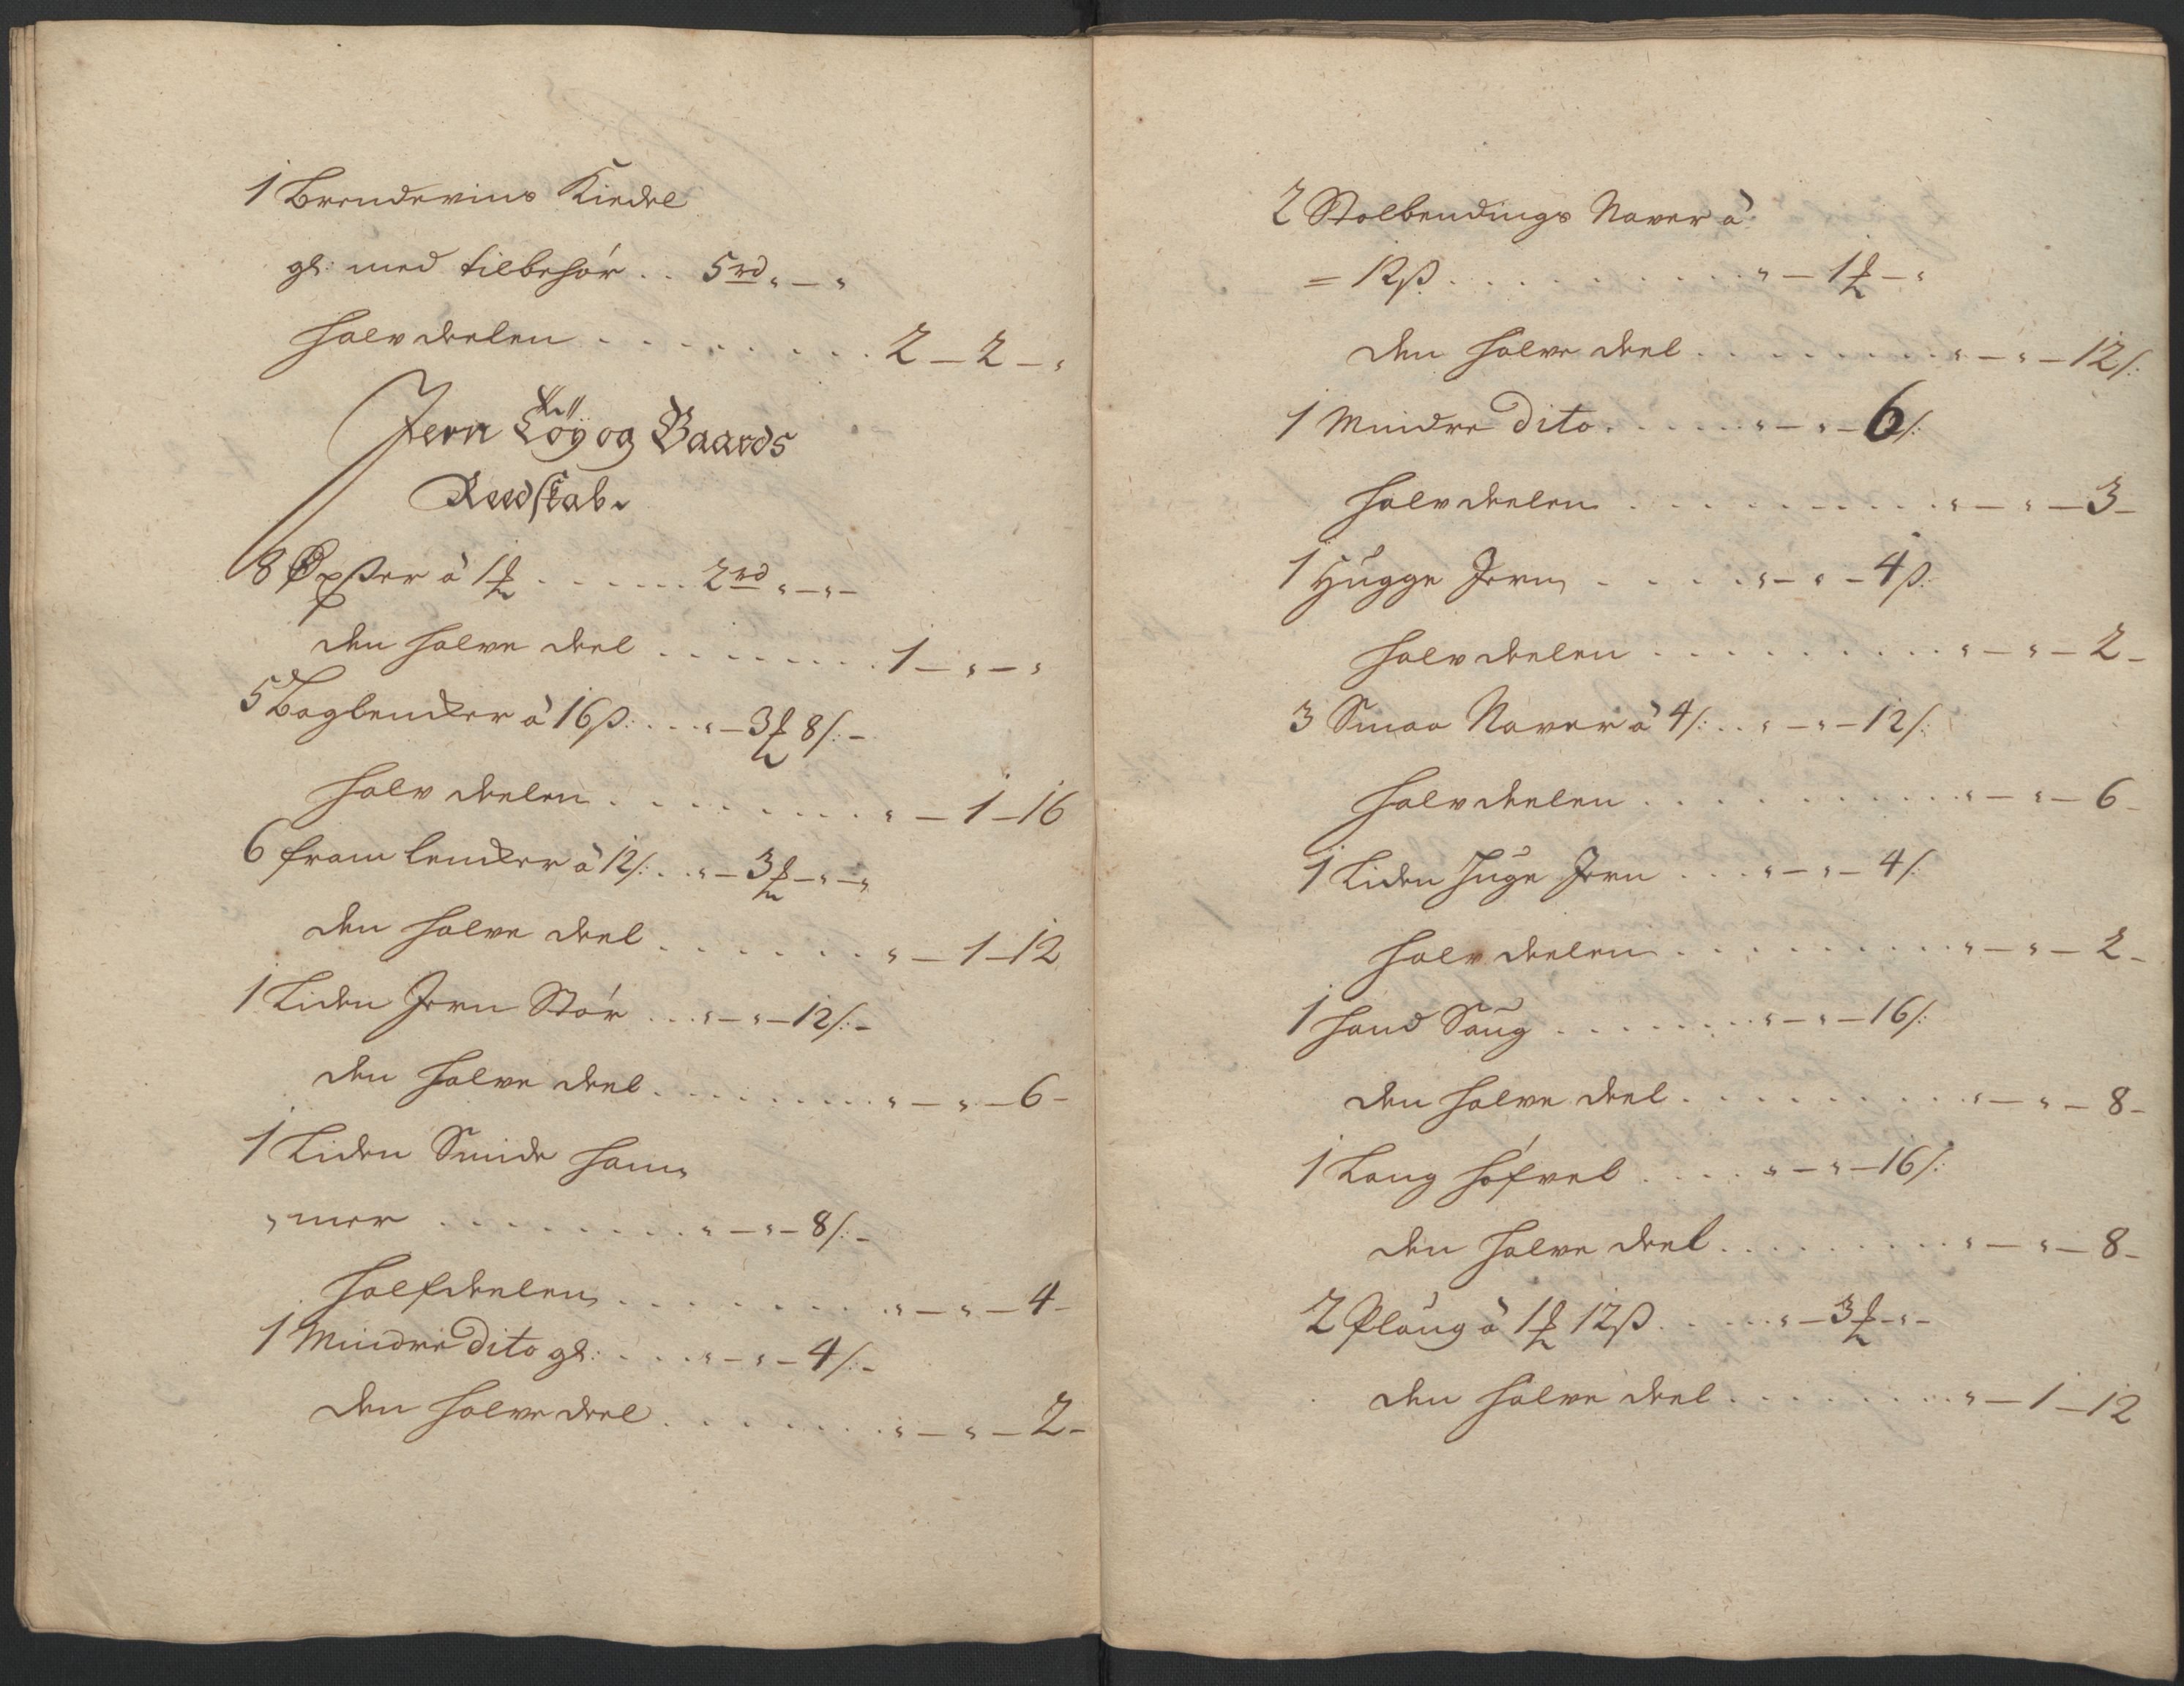 1 Brendeviins Kiedel
gl: med tilbehör .. 5 rd „ — „
halvdeelen . . . . . . . . 2 — 2 — „
Jern Töÿ og Gaards
Reedskab.
8 Øxßer à 1 ₰ . . . . . . 2 rd „ — „ —
den halve deel . . . . . . . 1 — „ — „
5 Baglencker à 16 ß: . . . „ — 3 ₰ 8 /: —
halv deelen . . . . . . . . „ — 1 — 16
6 fram lencker à 12 /: . . „ — 3 ₰ — „ — „
den halve deel . . . . . . . „ — 1 — 12
1 Liden Jern Stör . . . „ — „ — 12 /: —
den halve deel . . . . . . . . . „ — „ — 6 —
1 Liden Smide ham„
„mer . . . . . . . . . „ — „ — 8 /: —
halfdeelen . . . . . . . . . „ — „ — 4 —
1 Mindre dito gl: . . . . „ — „ — 4 /: —
den halve deel . . . . . . . . „ — „ — 2 —
2 Stolbendings Naver à
= 12 ß . . . . . . . . . . . „ — 1 ₰ — „
den halve deel . . . . . . . . . „ — „ — 12 /:
1 Mindre dito . . . . . . „ — „ — 6 /:
halvdeelen . . . . . . . . . . . „ — „ — 3 —
1 Hugge Jern . . . . . „ — „ — 4 ß:
halvdeelen . . . . . . . . . . „ — „ — 2 —
3 Smaa Naver à 4 /: . . „ — „ — 12 /:
halvdeelen . . . . . . . . . . . „ — „ — 6 —
1 Liden Huge Jern . . . „ — „ — 4 /:
halvdeelen . . . . . . . . . . „ — „ — 2 —
1 hand Saug . . . . . . . . „ — „ — 16 /:
den halve deel . . . . . . . . . . „ — „ — 8 —
1 Lang höfvel . . . . „ — „ — 16 /:
den halve deel . . . . . . . . . „ — „ — 8 —
2 Ploug à 1 ₰ 12 ß . . . . . „ — 3 ₰ — „ —
den halve deel . . . . . . . . . „ — 1 — 12